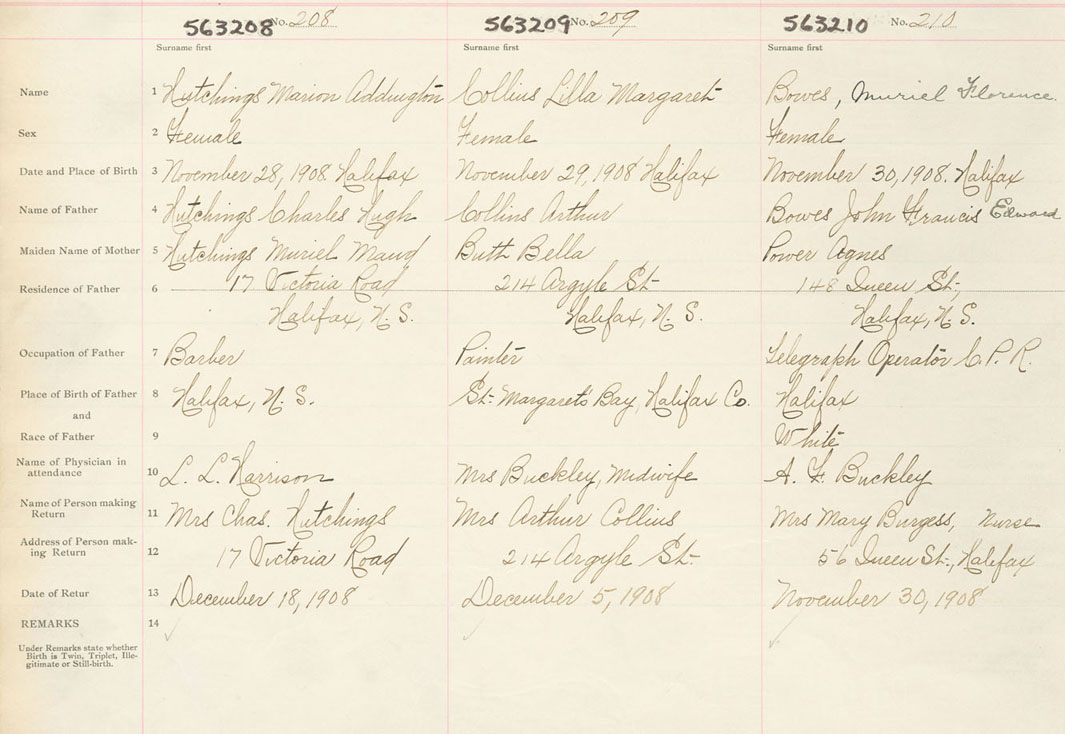 563208 No. 208 563209 No. 209 563210 No. 210
Surname first Surname first Surname first
Name 1 Hutchings Marion Addington Collins Lilla Margaret Bowes, Muriel Florence.
Sex 2 Female Female Female
Date and Place of Birth 3 November 28, 1908. Halifax November 29, 1908 Halifax November 30, 1908. Halifax
Name of Father 4 Hutchings Charles Hugh Collins Arthur Bowes John Francis Edward
Maiden Name of Mother 5 Hutchings Muriel Maud Buth Bella Power Agnes
Residence of Father 6 17 Victoria Road 214 Argyle St. 148 Queen St.,
Halifax, N. S. Halifax, N. S. Halifax, N. S.
Occupation of Father 7 Barber Painter Telegraph Operator C. P. R.
Place of Birth of Father 8 Halifax, N. S. St. Margarets Bay, Halifax Co. Halifax
and
Race of Father 9 White
Name of Physician in
attendance 10 L. L. Harrison Mrs Buckley, Midwife A. F. Buckley
Name of Person making
Return 11 Mrs Chas. Hutchings Mrs Arthur Collins Mrs Mary Burgess, Nurse
Address of Person mak-
ing Return 12 17 Victoria Road 214 Argyle St. 56 Queen St., Halifax
Date of Retur 13 December 18, 1908 December 5, 1908 November 30, 1908
REMARKS 14
Under Remarks state whether
Birth is Twin, Triplet, Ille-
gitimate or Still-birth.